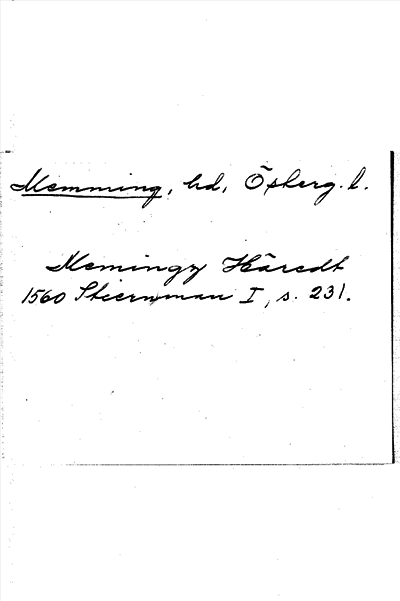 Memming, hd, Östberg. l.
Memingy Häredt
1560 Stiernman I, s. 231.